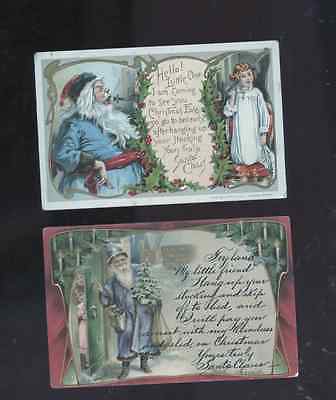 Hello!
Little One
I am Coming
to see you
Christmas Eve
so go to bed early
after hanging up
your stocking
Very Truly
Santa Claus
My little friend
Hang up your
stocking and skip
to bed, and
I will pay you
a visit with my Reindeer
and sled, on Christmas
Yours truly
Santa Claus